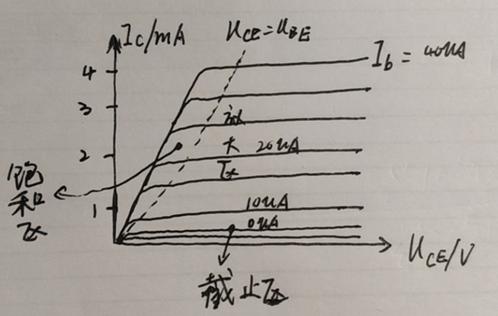 Ic/mA
UCE=UBE
Ib=40uA
4
3
2
1
放
大
区
20uA
10uA
0uA
饱
和
区
截止区
UCE/V